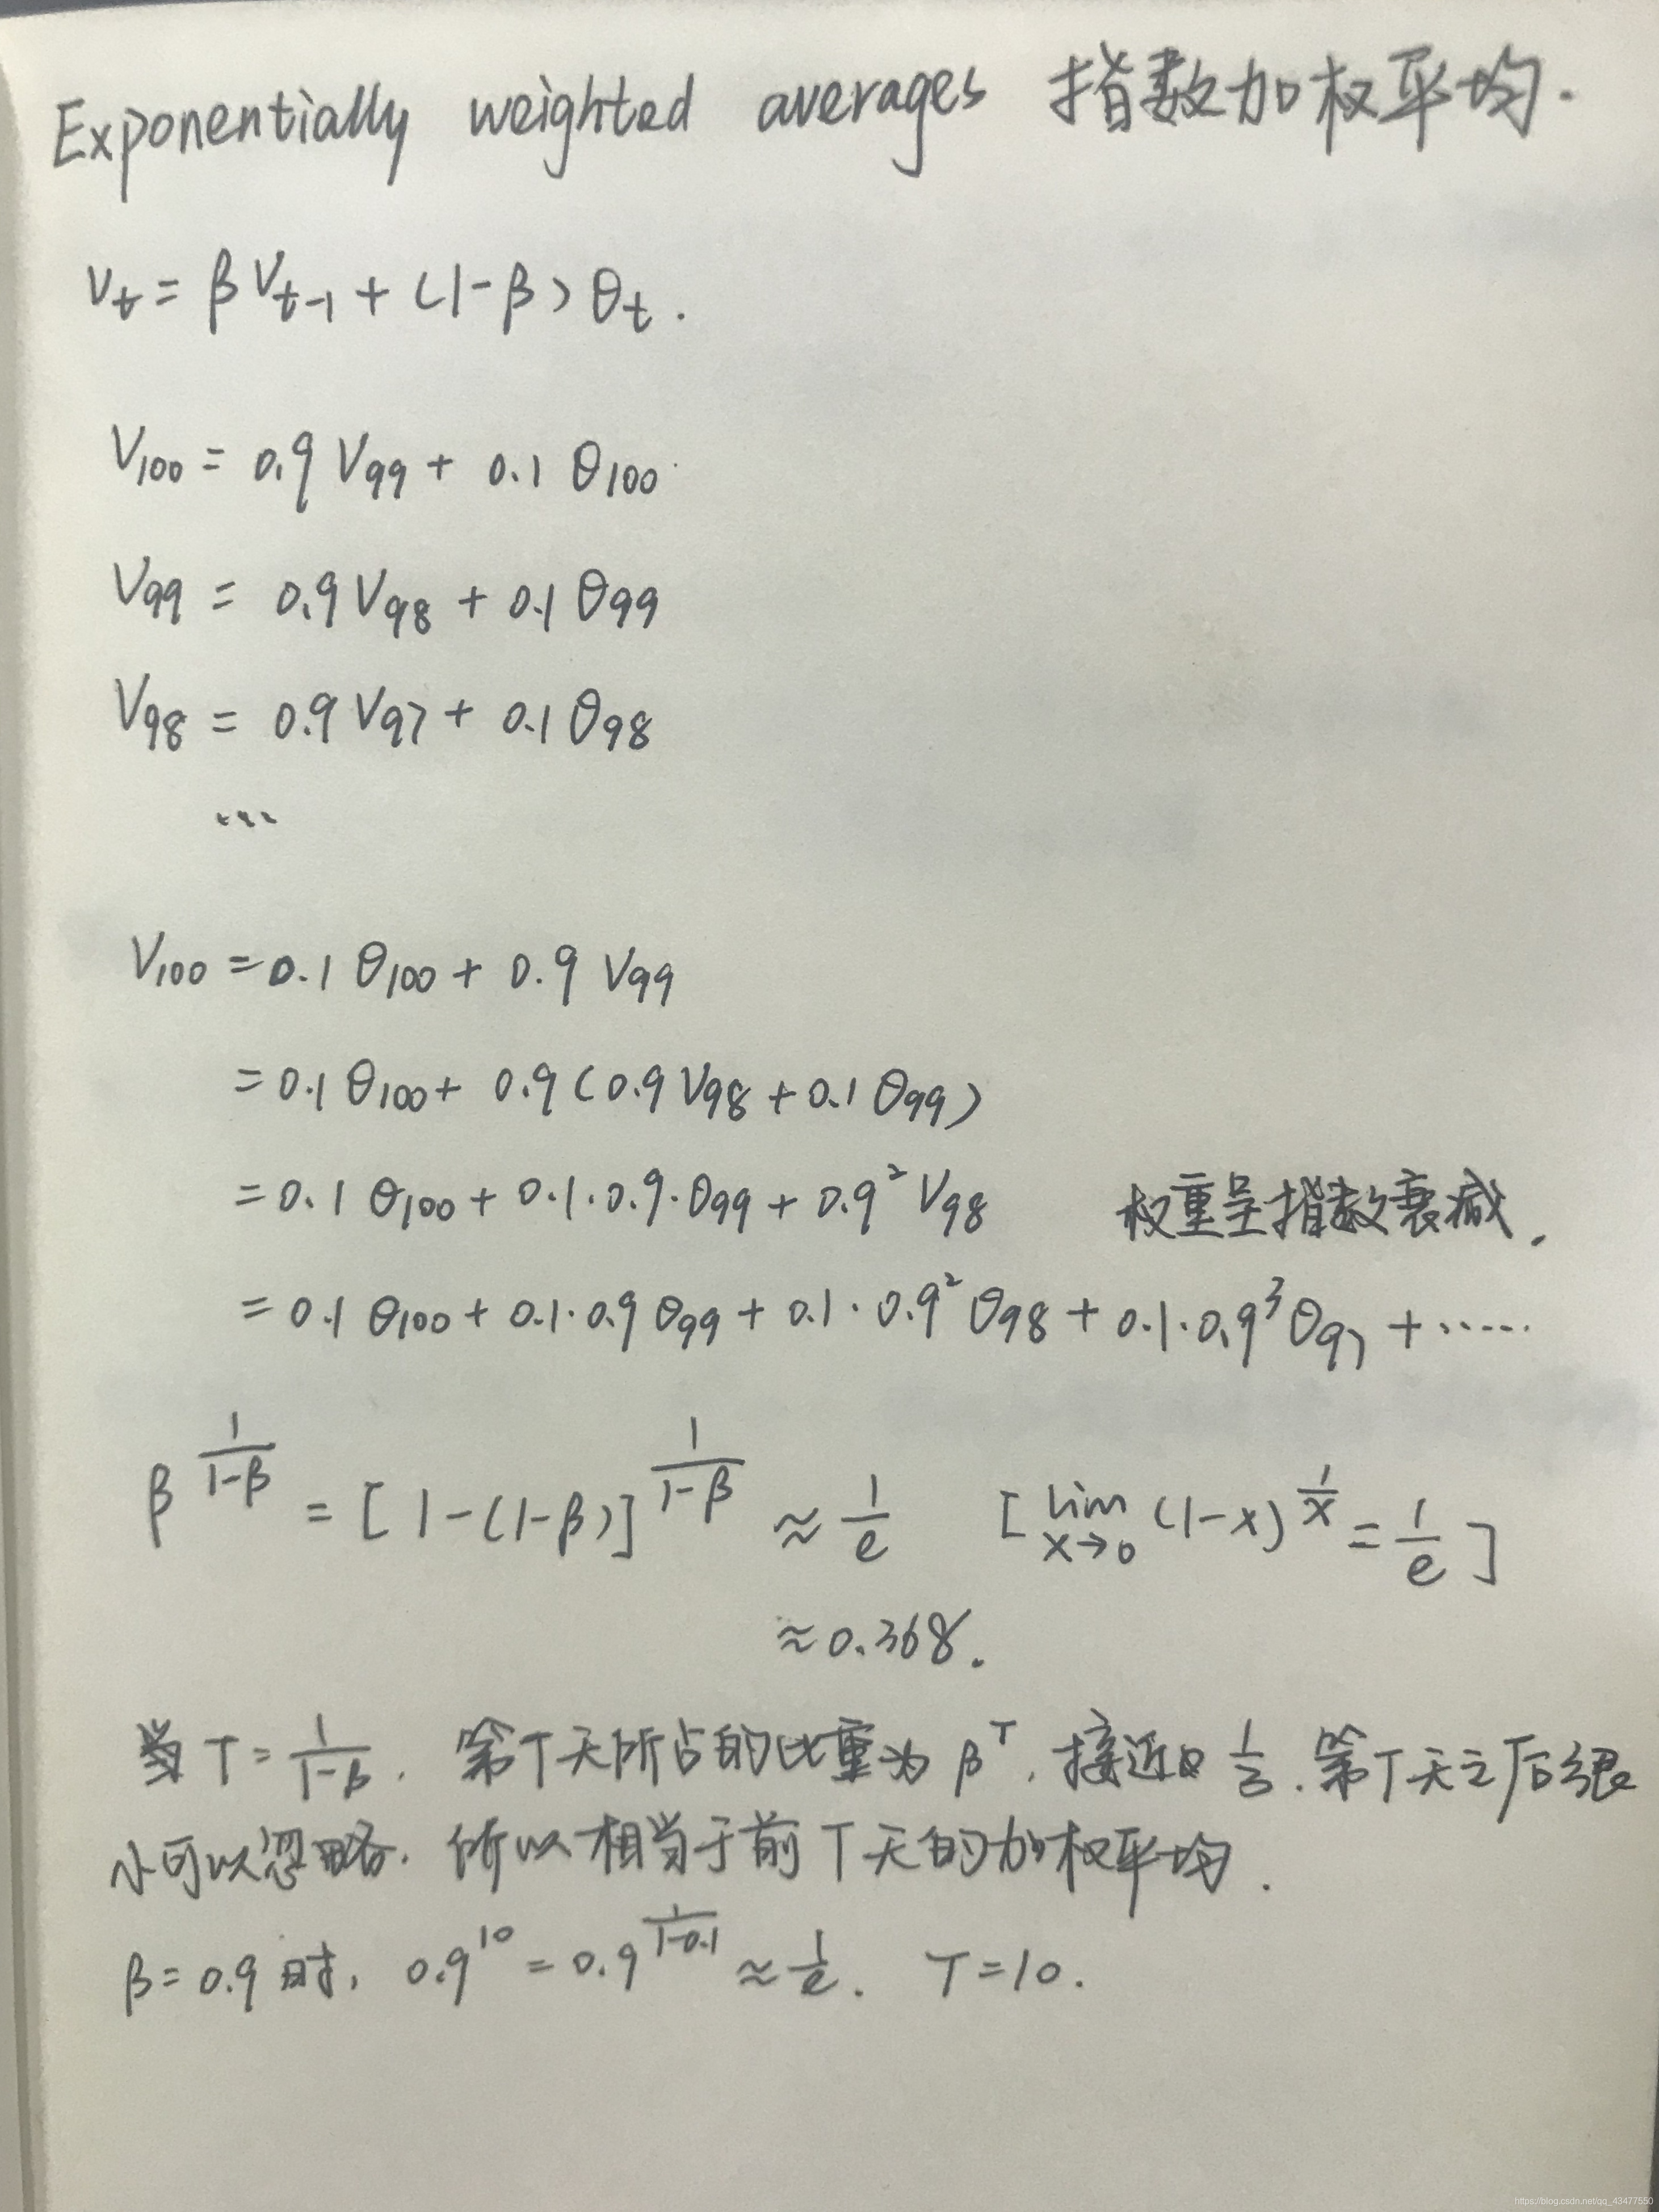 Exponentially weighted averages 指数加权平均.
V_t = βV_{t-1} + (1-β)θ_t.
V_100 = 0.9 V_99 + 0.1 θ_100.
V_99 = 0.9 V_98 + 0.1 θ_99
V_98 = 0.9 V_97 + 0.1 θ_98
...
V_100 = 0.1 θ_100 + 0.9 V_99
= 0.1 θ_100 + 0.9 (0.9 V_98 + 0.1 θ_99)
= 0.1 θ_100 + 0.1·0.9·θ_99 + 0.9^2 V_98 权重呈指数衰减.
= 0.1 θ_100 + 0.1·0.9 θ_99 + 0.1·0.9^2 θ_98 + 0.1·0.9^3 θ_97 + ......
β^{\frac{1}{1-β}} = [1-(1-β)]^{\frac{1}{1-β}} ≈ \frac{1}{e} [\lim_{x→0} (1-x)^{\frac{1}{x}} = \frac{1}{e}]
≈ 0.368.
当 T = \frac{1}{1-β}. 第T天所占的比重为 β^T, 接近 \frac{1}{3}. 第T天之后很
小可以忽略. 所以相当于前T天的加权平均.
β = 0.9 时, 0.9^{10} = 0.9^{\frac{1}{1-0.1}} ≈ \frac{1}{e}. T = 10.
https://blog.csdn.net/qq_43477550